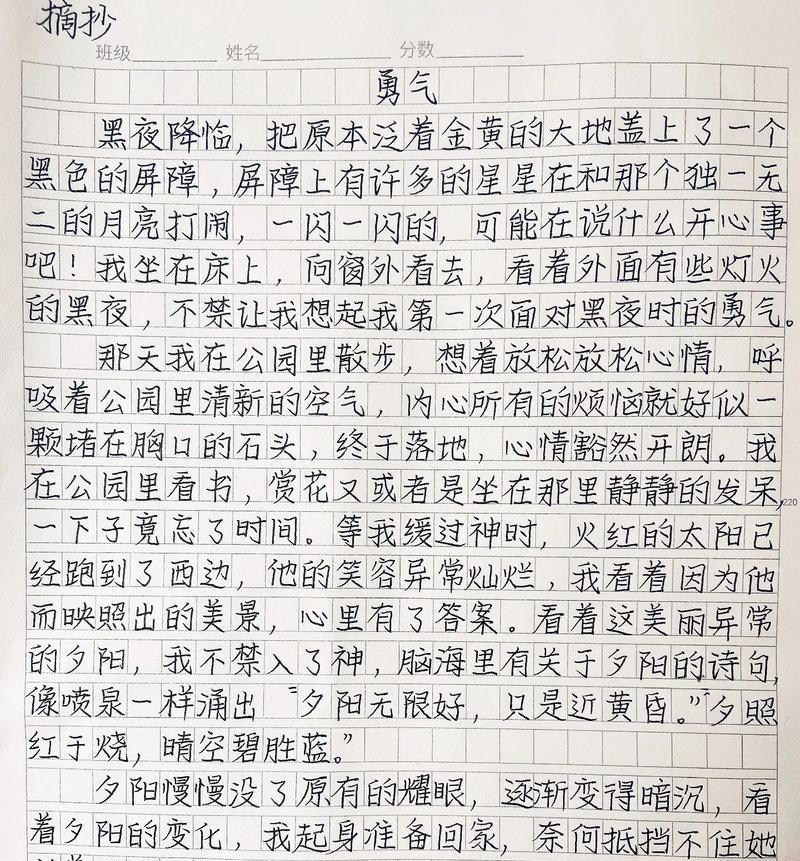 摘抄
班级 姓名 分数
勇气
黑夜降临，把原本泛着金黄的大地盖上了一个
黑色的屏障，屏障上有许多的星星在和那个独一无
二的月亮打闹，一闪一闪的，可能在说什么开心事
吧！我坐在床上，向窗外看去，看着外面有些灯火
的黑夜，不禁让我想起我第一次面对黑夜时的勇气。
那天我在公园里散步，想着放松放松心情，呼
吸着公园里清新的空气，内心所有的烦恼就好似一
颗堵在胸口的石头，终于落地，心情豁然开朗。我
在公园里看书，赏花又或者是坐在那里静静的发呆，
220
一下子竟忘了时间。等我缓过神时，火红的太阳已
经跑到了西边，他的笑容异常灿烂，我看着因为他
而映照出的美景，心里有了答案。看着这美丽异常
的夕阳，我不禁入了神，脑海里有关于夕阳的诗句，
像喷泉一样涌出“夕阳无限好，只是近黄昏。”“夕照
红于烧，晴空碧胜蓝。”
夕阳慢慢没了原有的耀眼，逐渐变得暗沉，看
着夕阳的变化，我起身准备回家，奈何抵挡不住她